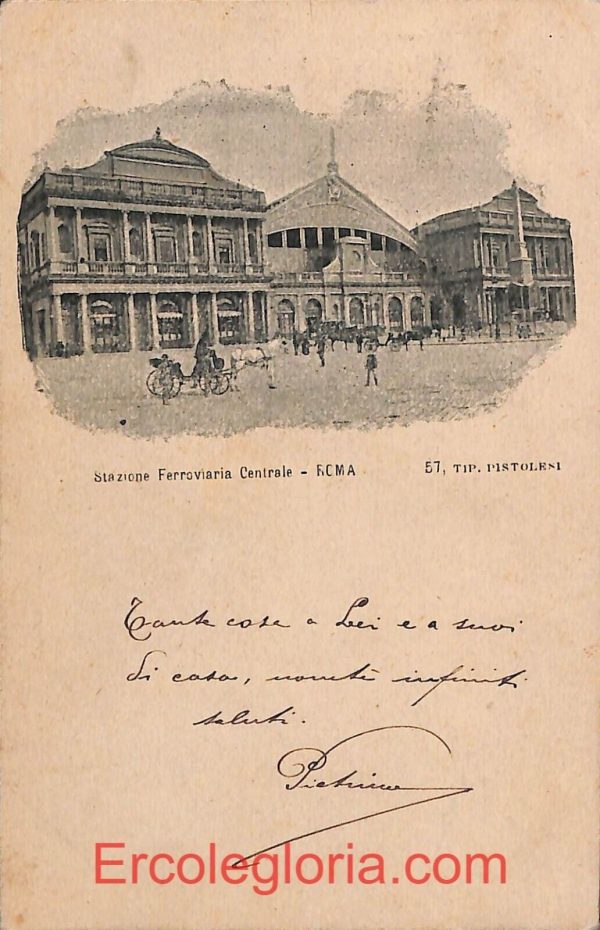 Stazione Ferroviaria Centrale - ROMA
57, TIP. PISTOLESI
Tante cose a Lei e a suoi
di casa, infiniti
saluti.
Ercolegloria.com